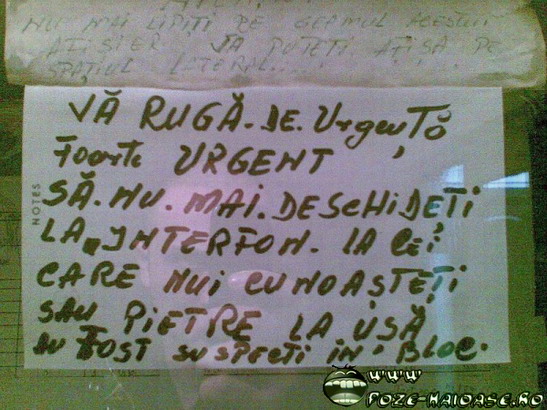 NU MAI LIPIȚI PE GEAMUL ACESTUI
AFIȘIER VĂ PUTEȚI AFIȘA PE
SPAȚIUL LATERAL...
VĂ RUGĂ.DE.UrgenȚă
Foarte URGENT
SĂ.NU.MAI.DESCHIDEȚI
LA„INTERFON. la Cei
CARE NUi CUNOAȘTEȚI
SAU PIETRE LA USĂ
au FOST SUSPECȚI IN BLOC.
NOTES
WWW
POZE-HAIOASE.RO